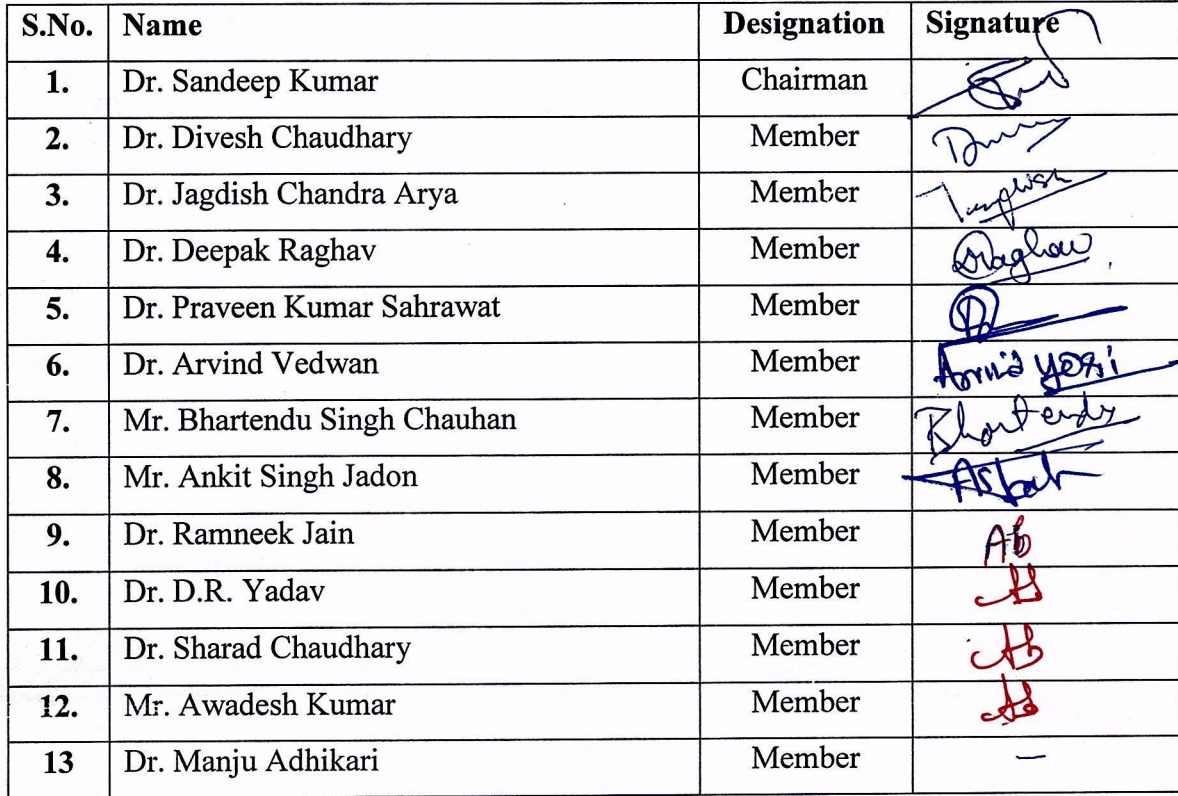 S.No. Name Designation Signature
1. Dr. Sandeep Kumar Chairman
2. Dr. Divesh Chaudhary Member
3. Dr. Jagdish Chandra Arya Member
4. Dr. Deepak Raghav Member Raghav
5. Dr. Praveen Kumar Sahrawat Member
6. Dr. Arvind Vedwan Member
7. Mr. Bhartendu Singh Chauhan Member Bhartendu
8. Mr. Ankit Singh Jadon Member
9. Dr. Ramneek Jain Member Ab
10. Dr. D.R. Yadav Member Ab
11. Dr. Sharad Chaudhary Member Ab
12. Mr. Awadesh Kumar Member Ab
13 Dr. Manju Adhikari Member –